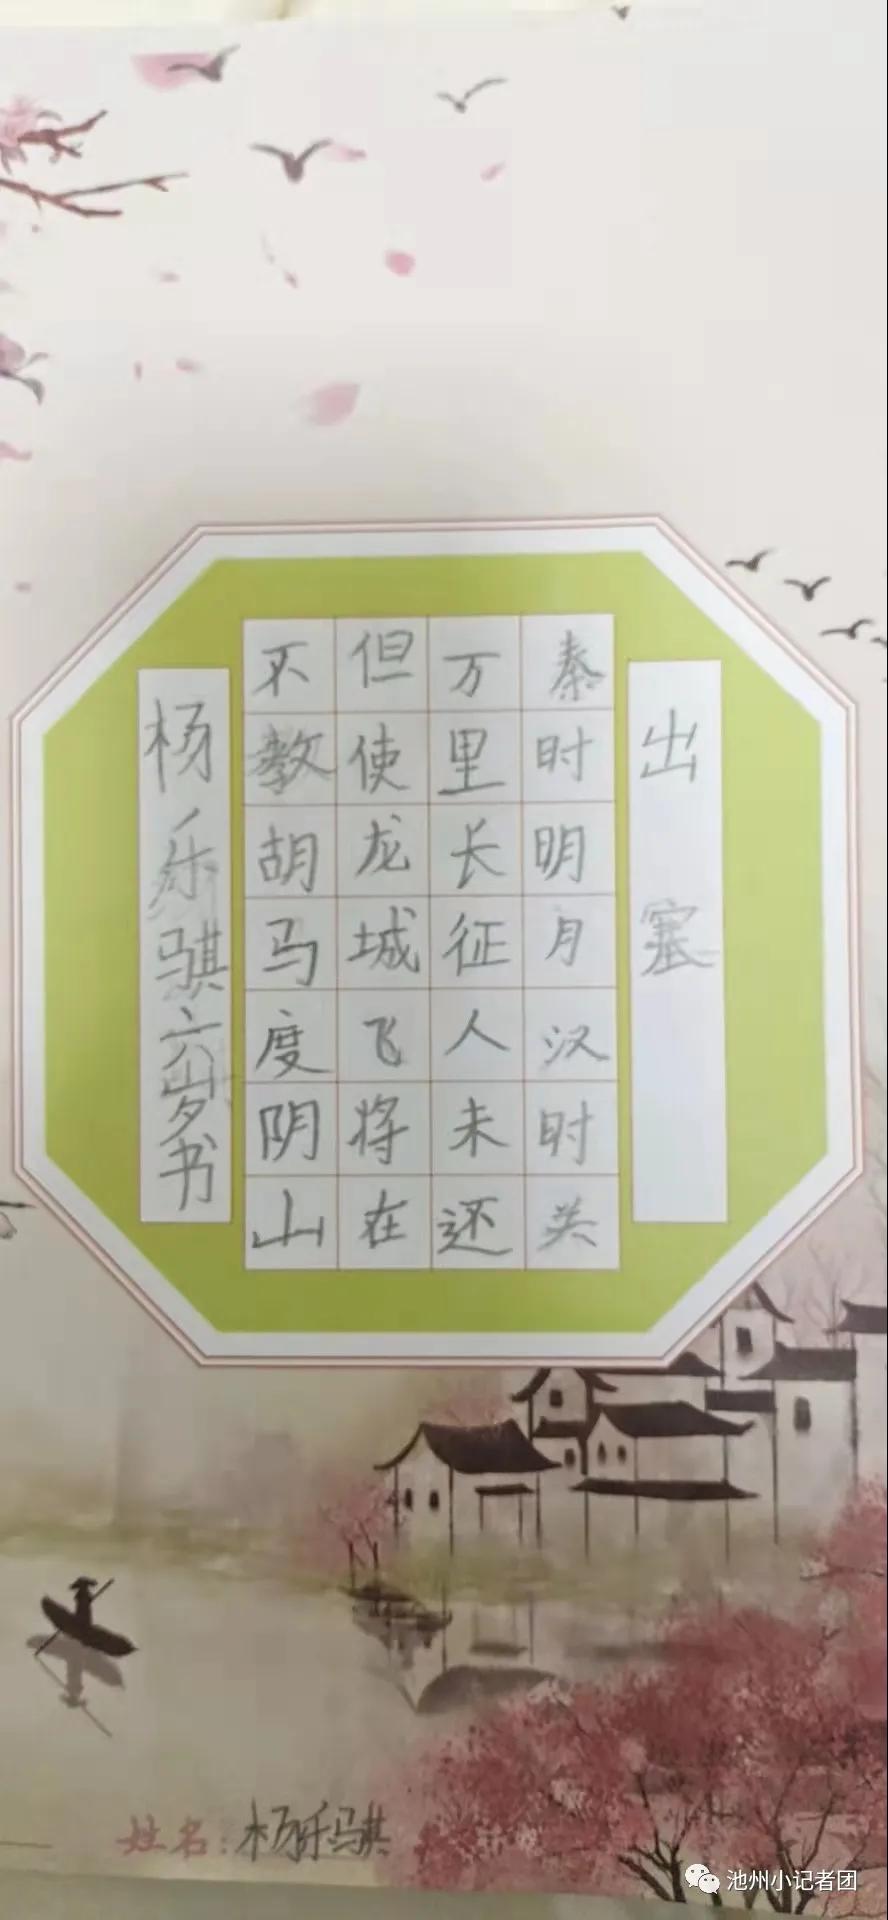 出塞
秦时明月汉时关
万里长征人未还
但使龙城飞将在
不教胡马度阴山
杨乐骐六岁书
姓名：杨乐骐
池州小记者团